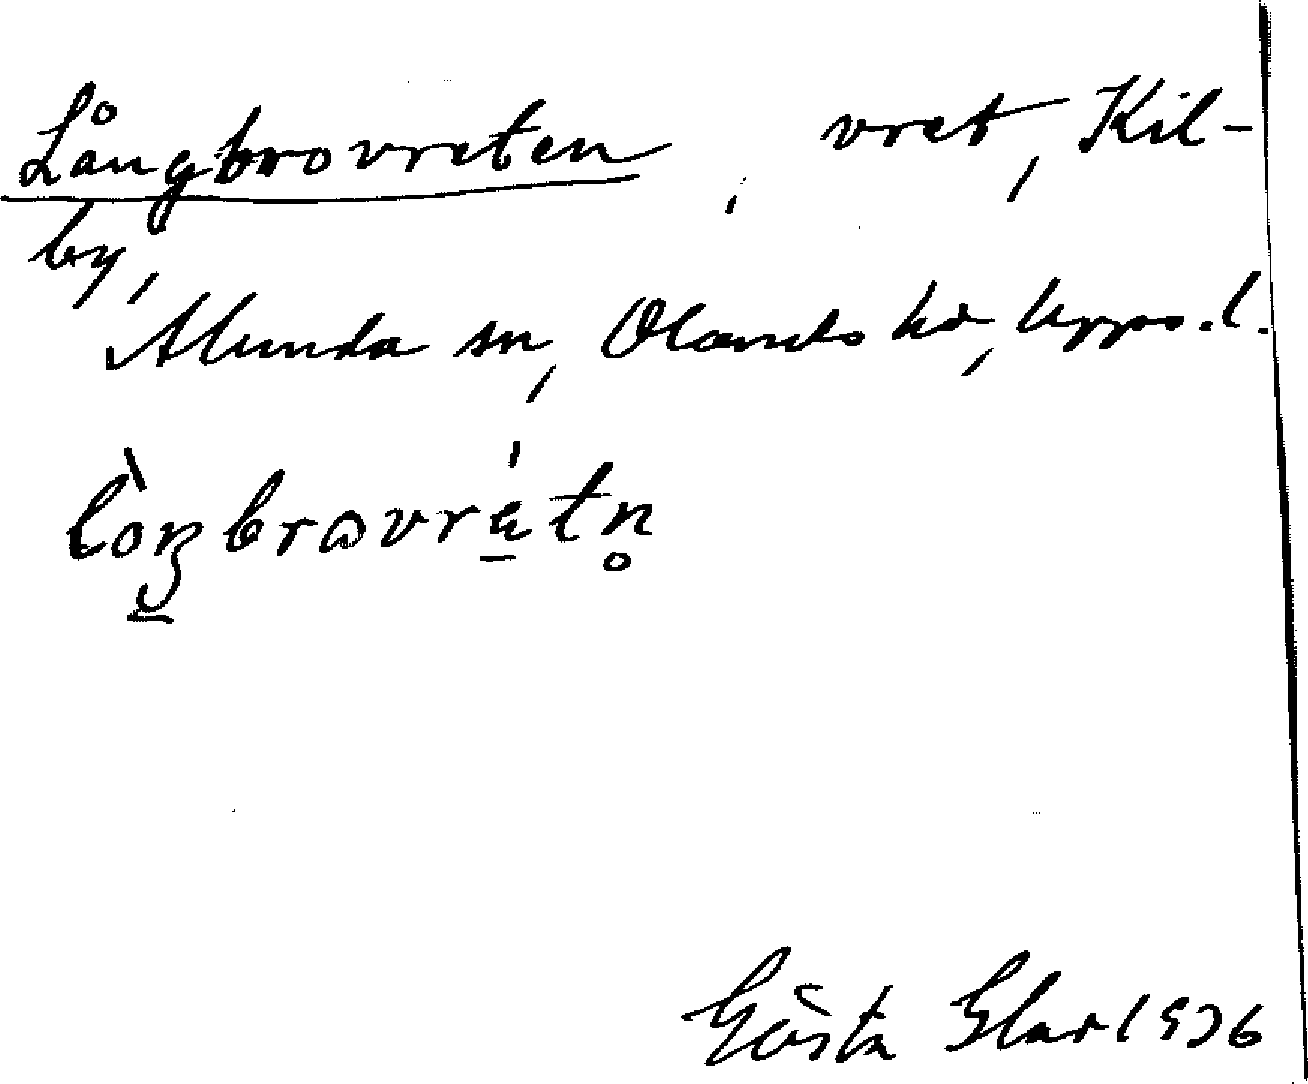 Långbrovreten, vret, Kil-
by,
Alunda sn, Olands hd, Upps. l.
Gösta Elar 1936